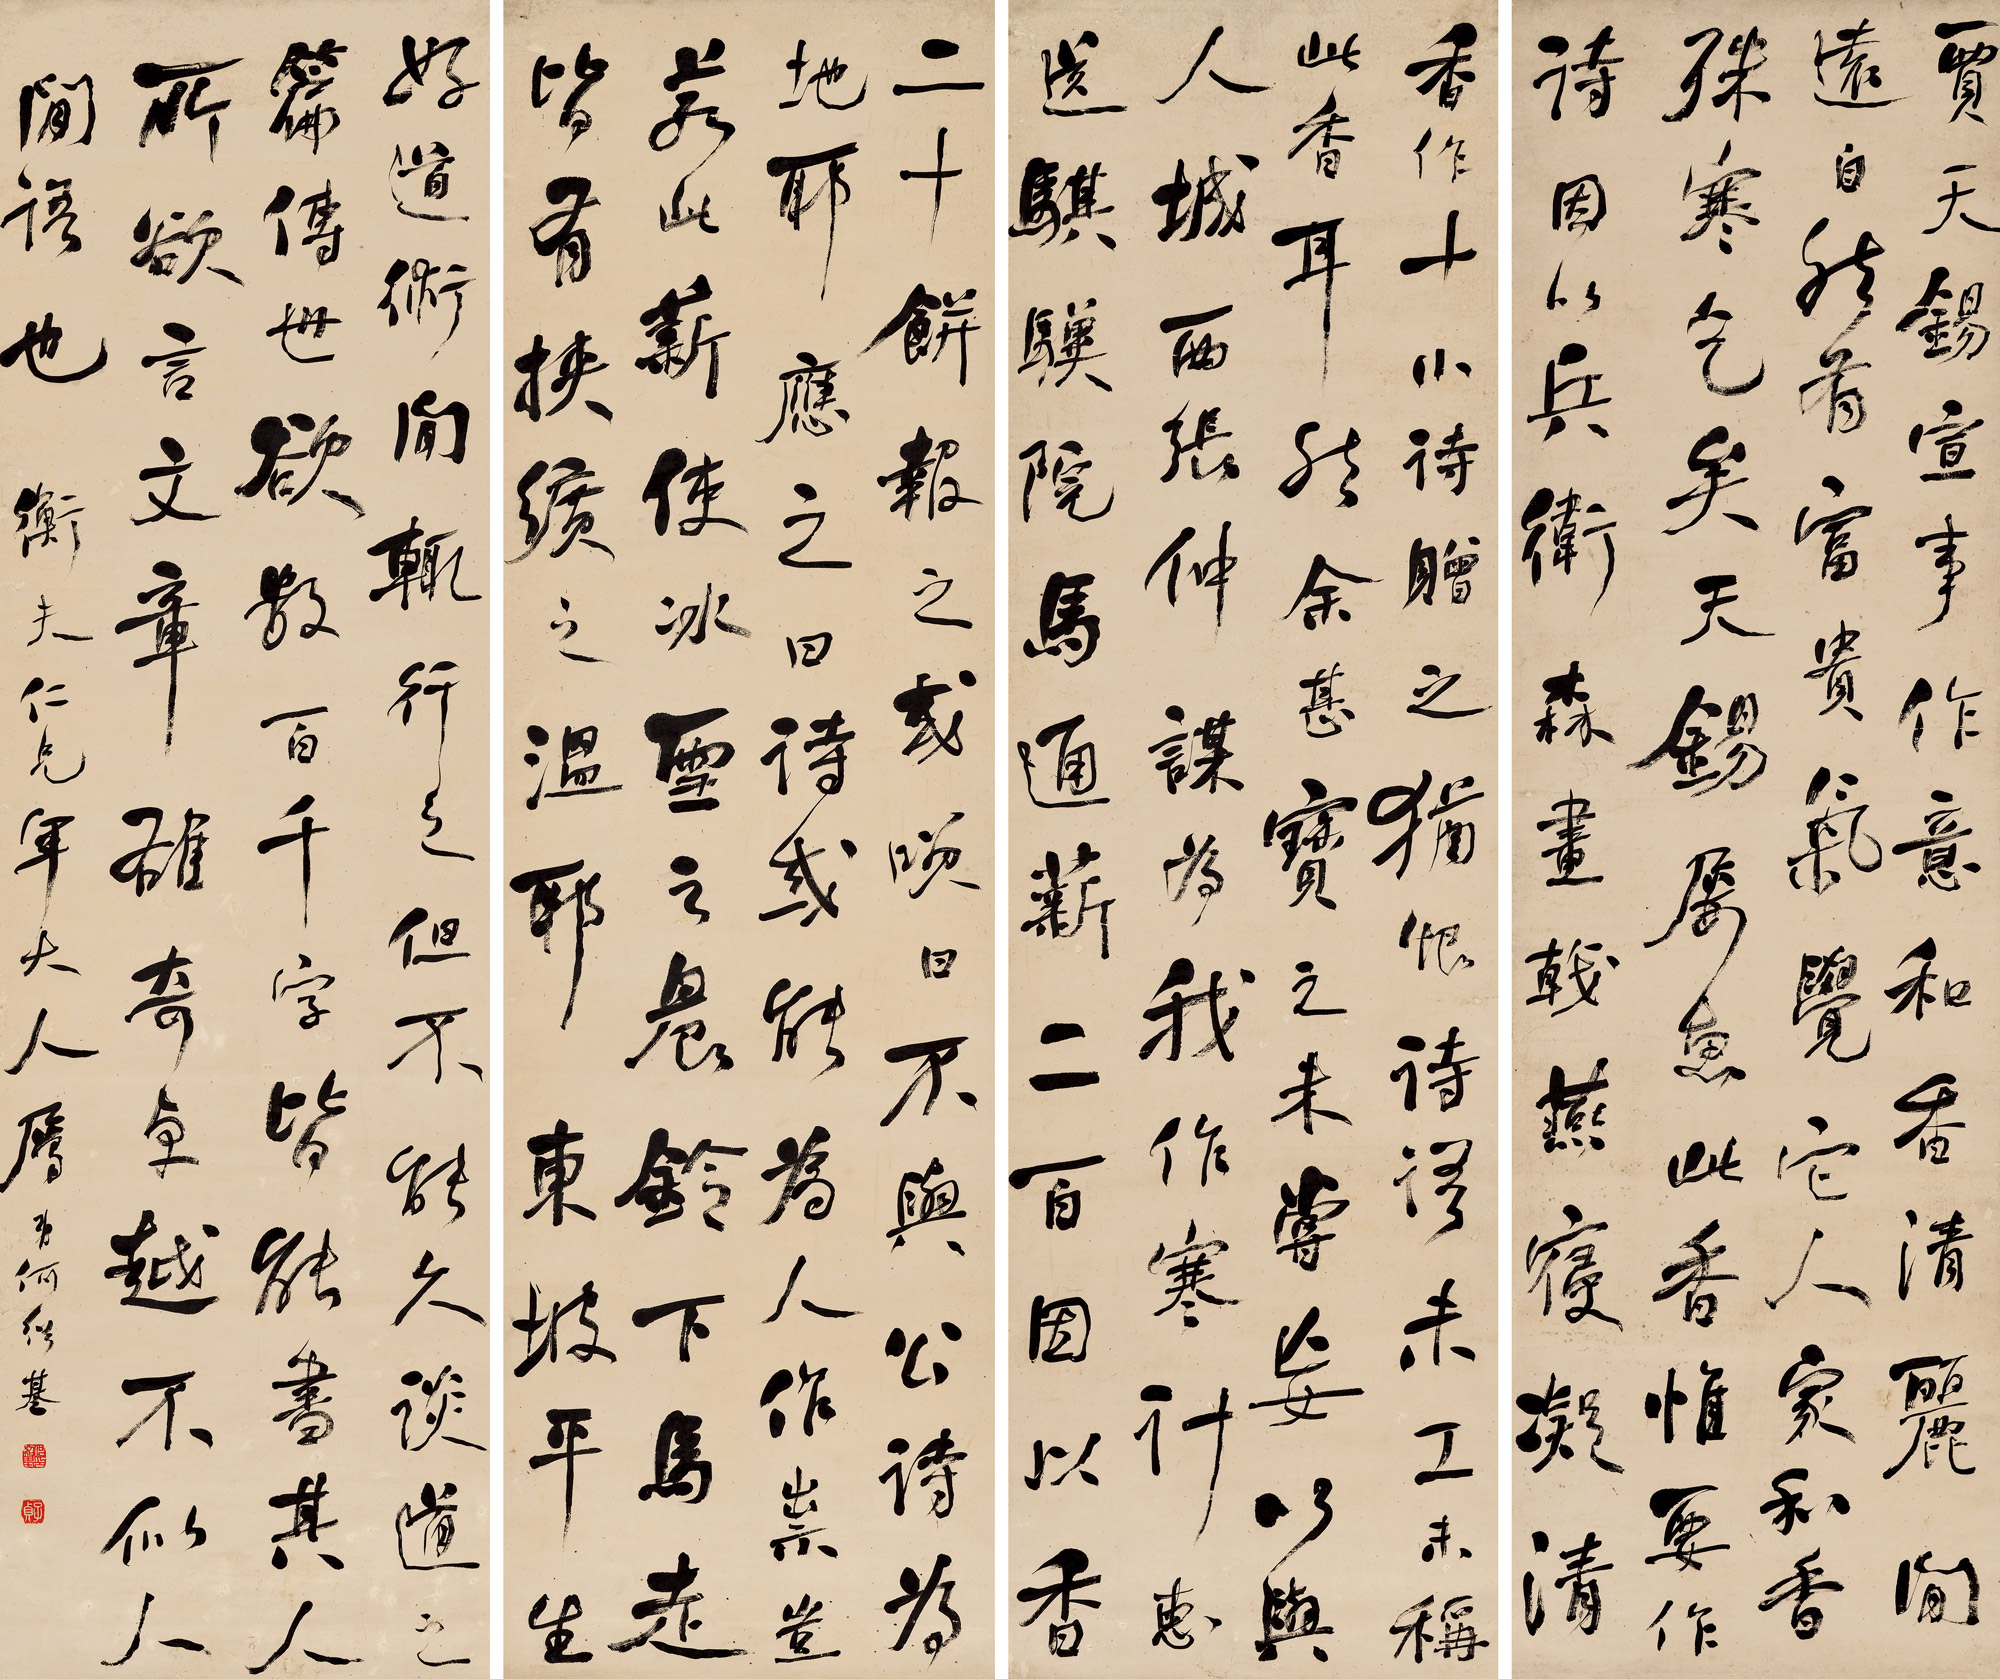 賈天錫宣事作意和香清麗閒
遠自然有富貴氣覺它人家和香
殊寒乞矣天錫屢惠此香惟要作
詩因以兵衛森畫戟燕寢凝清
香作十小詩贈之猶恨詩語未工未稱
此香耳然余甚寶之未嘗妄以與
人城西張仲謀為我作寒計惠
送騏驥院馬通薪二百因以香
二十餅報之或笑曰不與公詩為
地耶應之曰詩或能為人作祟豈
若此薪使冰雪之晨鈴下馬走
皆有挾纊之溫耶東坡平生
好道術聞輒行之但不能久談道之
篇傳世欲數百千字皆能書其人
所欲言文章雄奇卓越不似人
間語也 衡夫仁兄年大人屬 弟何紹基